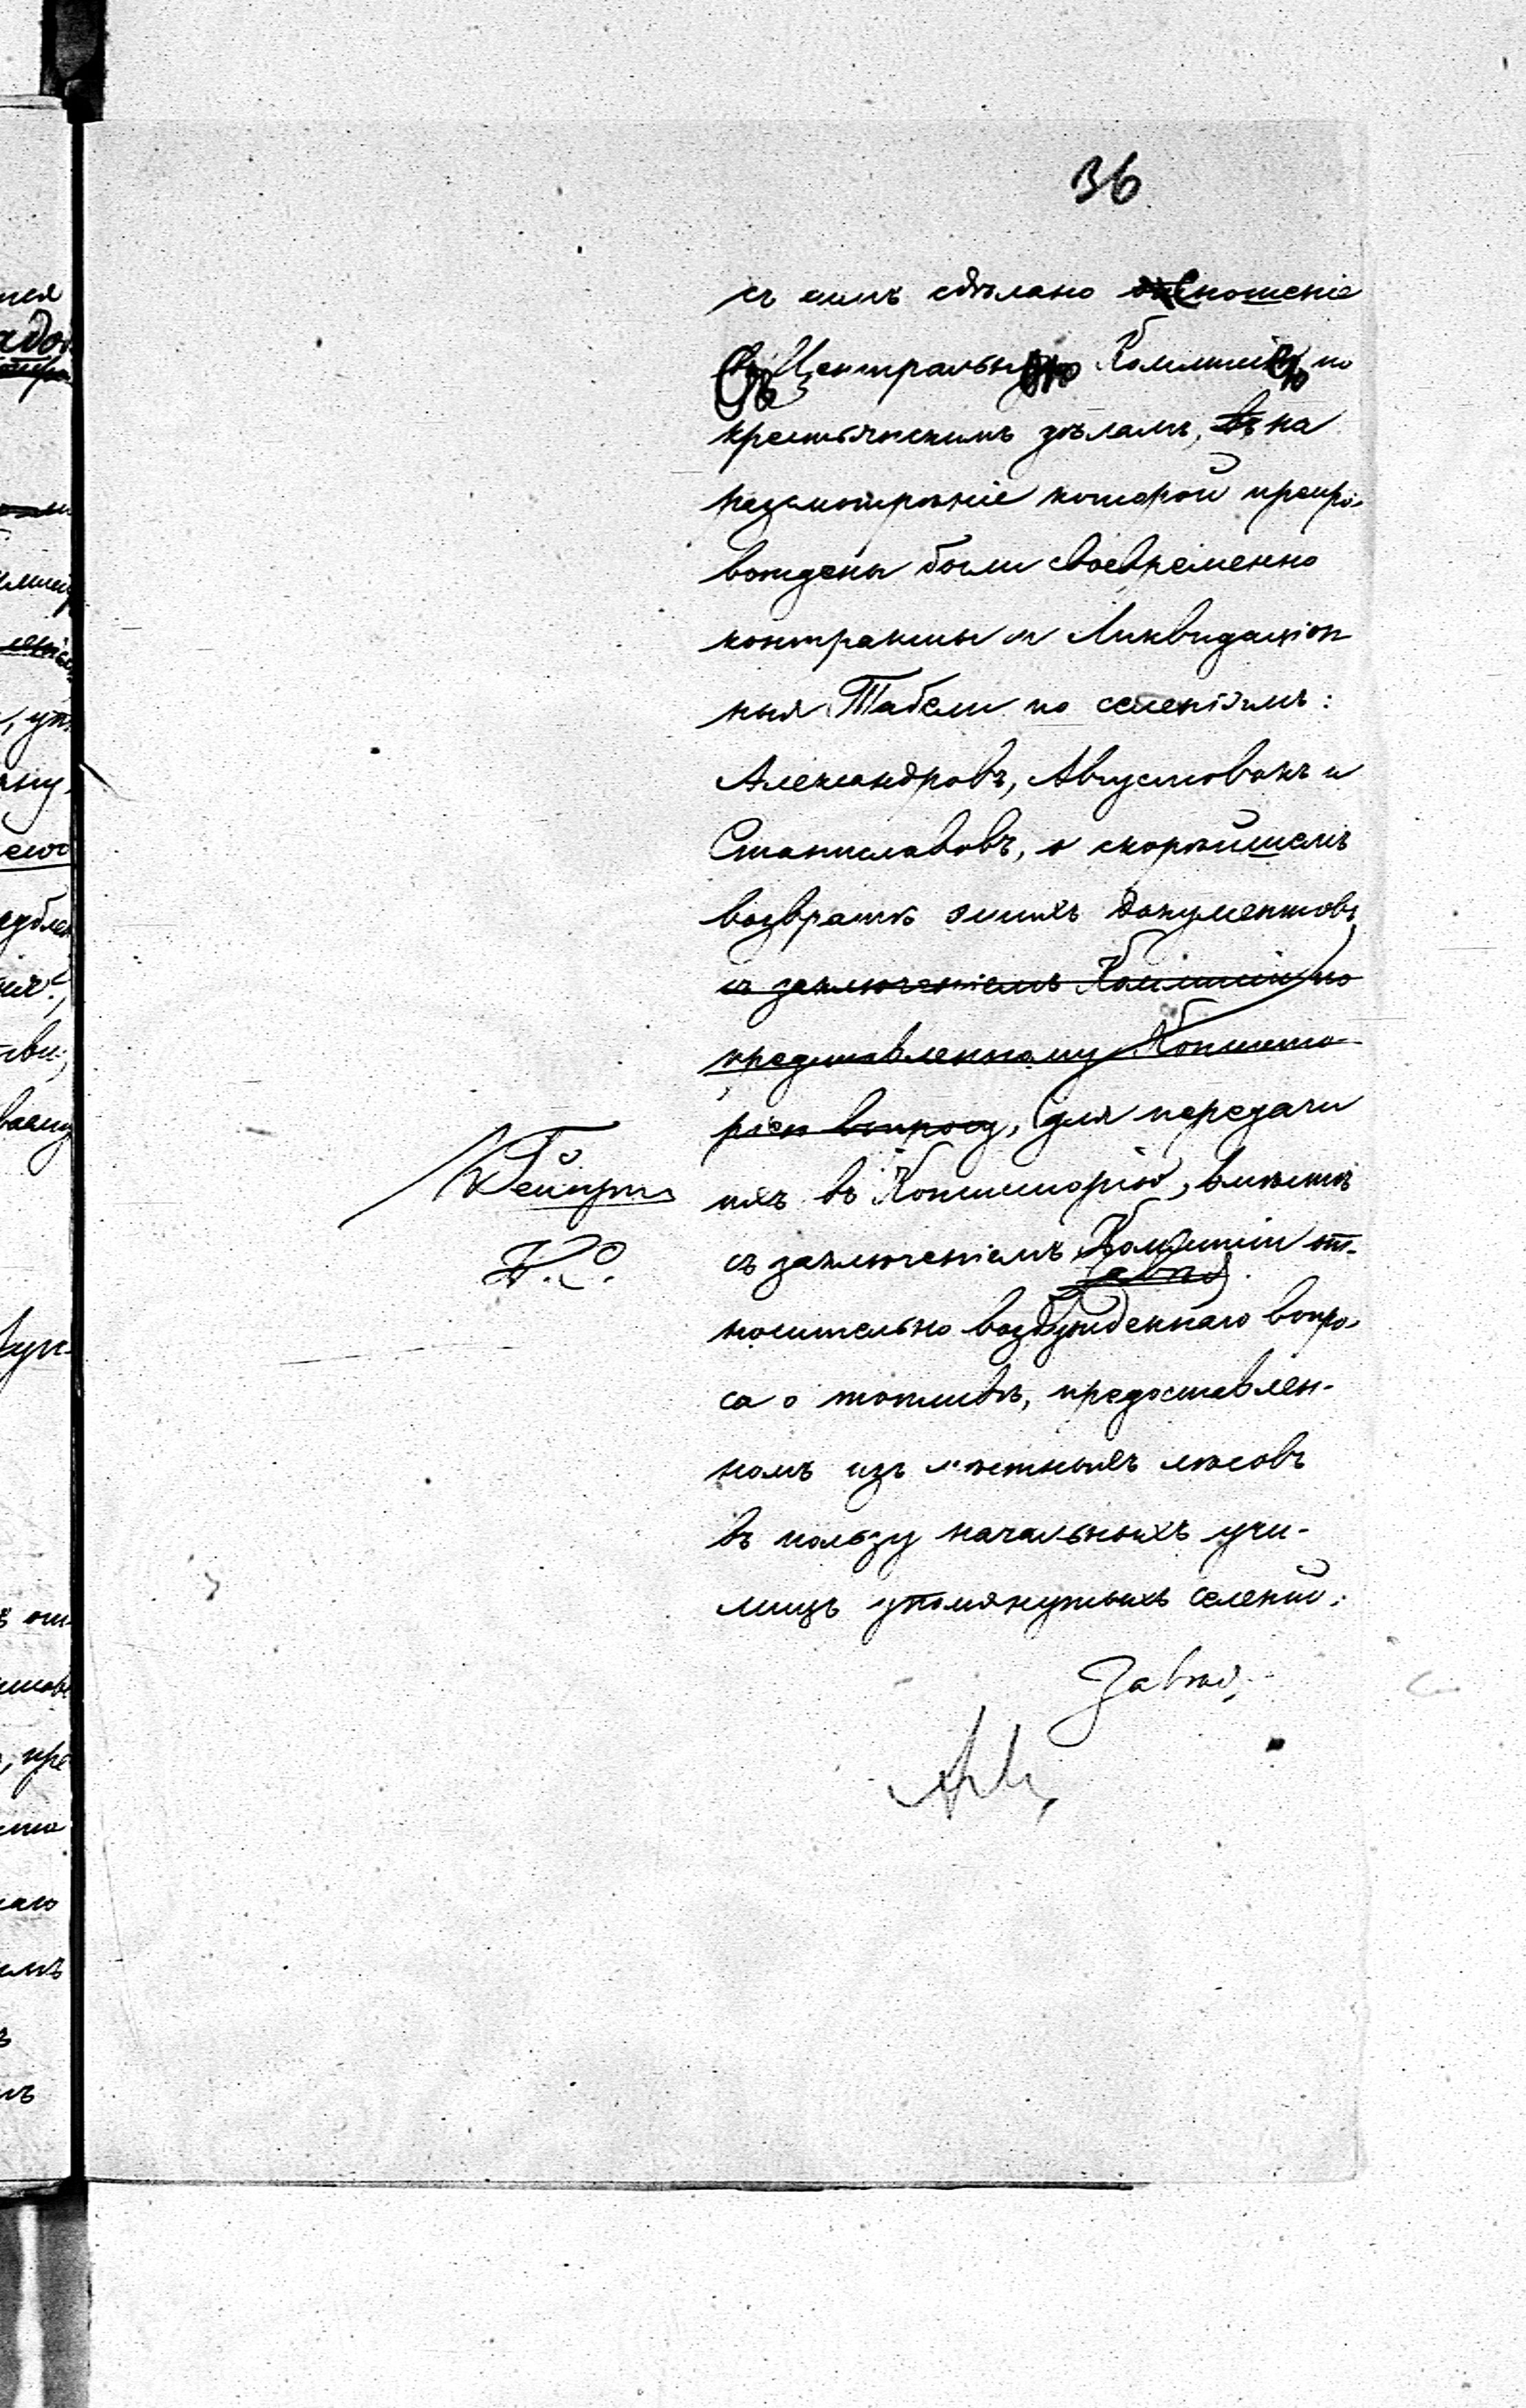 36
съ симъ сдѣлано сношеніе
Съ Центральною Коммисіею по
крестьянскимъ дѣламъ, на
разсмотрѣніе которой препро-
вождены были своевременно
контракты и Ликвидаціон
ныя Табели по селеніямъ:
Александровъ, Августовокъ и
Станиславовъ, о скорѣйшемъ
возвратѣ этихъ документовъ
съ заключеніемъ Коммисіи по
представленному Консисто-
ріею вопросу, для передачи
ихъ въ Консисторію, вмѣстѣ
съ заключеніемъ Коммисіи от-
носительно возбужденнаго вопро-
са о топливѣ, предоставлен-
номъ изъ мѣстныхъ лѣсовъ
въ пользу начальныхъ учи-
лищъ упомянутыхъ селеній.
К. С.
Завѣд.